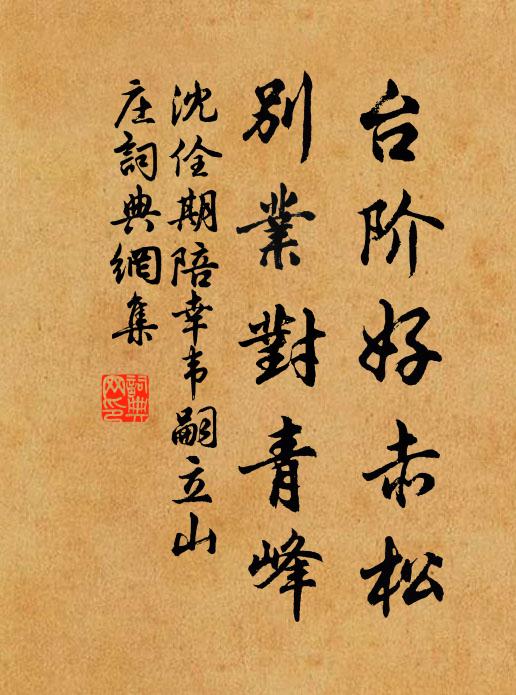 台阶好赤松
别業對青峰
沈佺期陪幸韦嗣立山
庄詞典網集
詞典网印